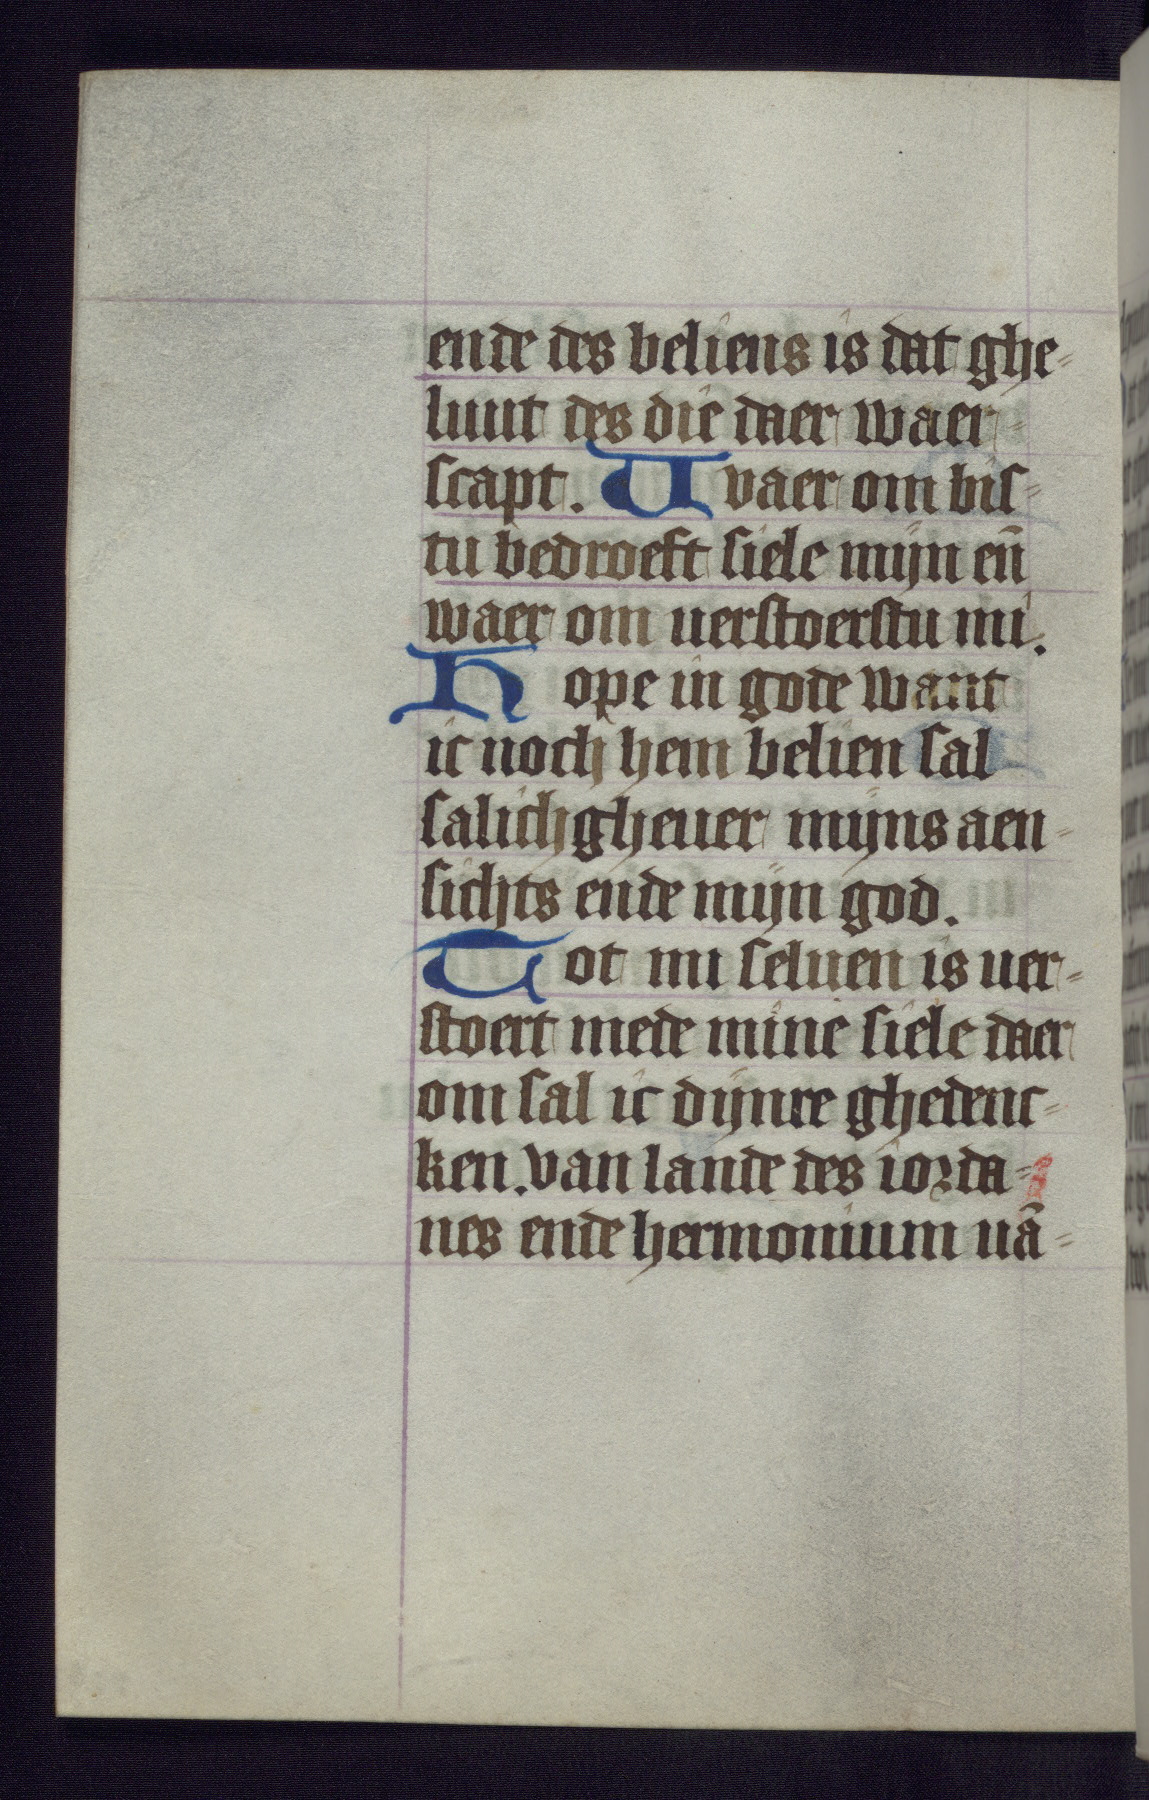 ende des beliens is dat ghe-
luut des die daer waer-
scapt. U vaer om bis-
tu bedroeft siele mijn eñ
waer om uerstoerstu mi.
Hope in gode want
ic noch hem belien sal
salichgheuer mijns aen-
sichts ende mijn god.
Tot mi seluen is uer-
stoert mede mine siele daer
om sal ic dijnre ghedenc-
ken. van lande des iorda-
nes ende hermonium uā-